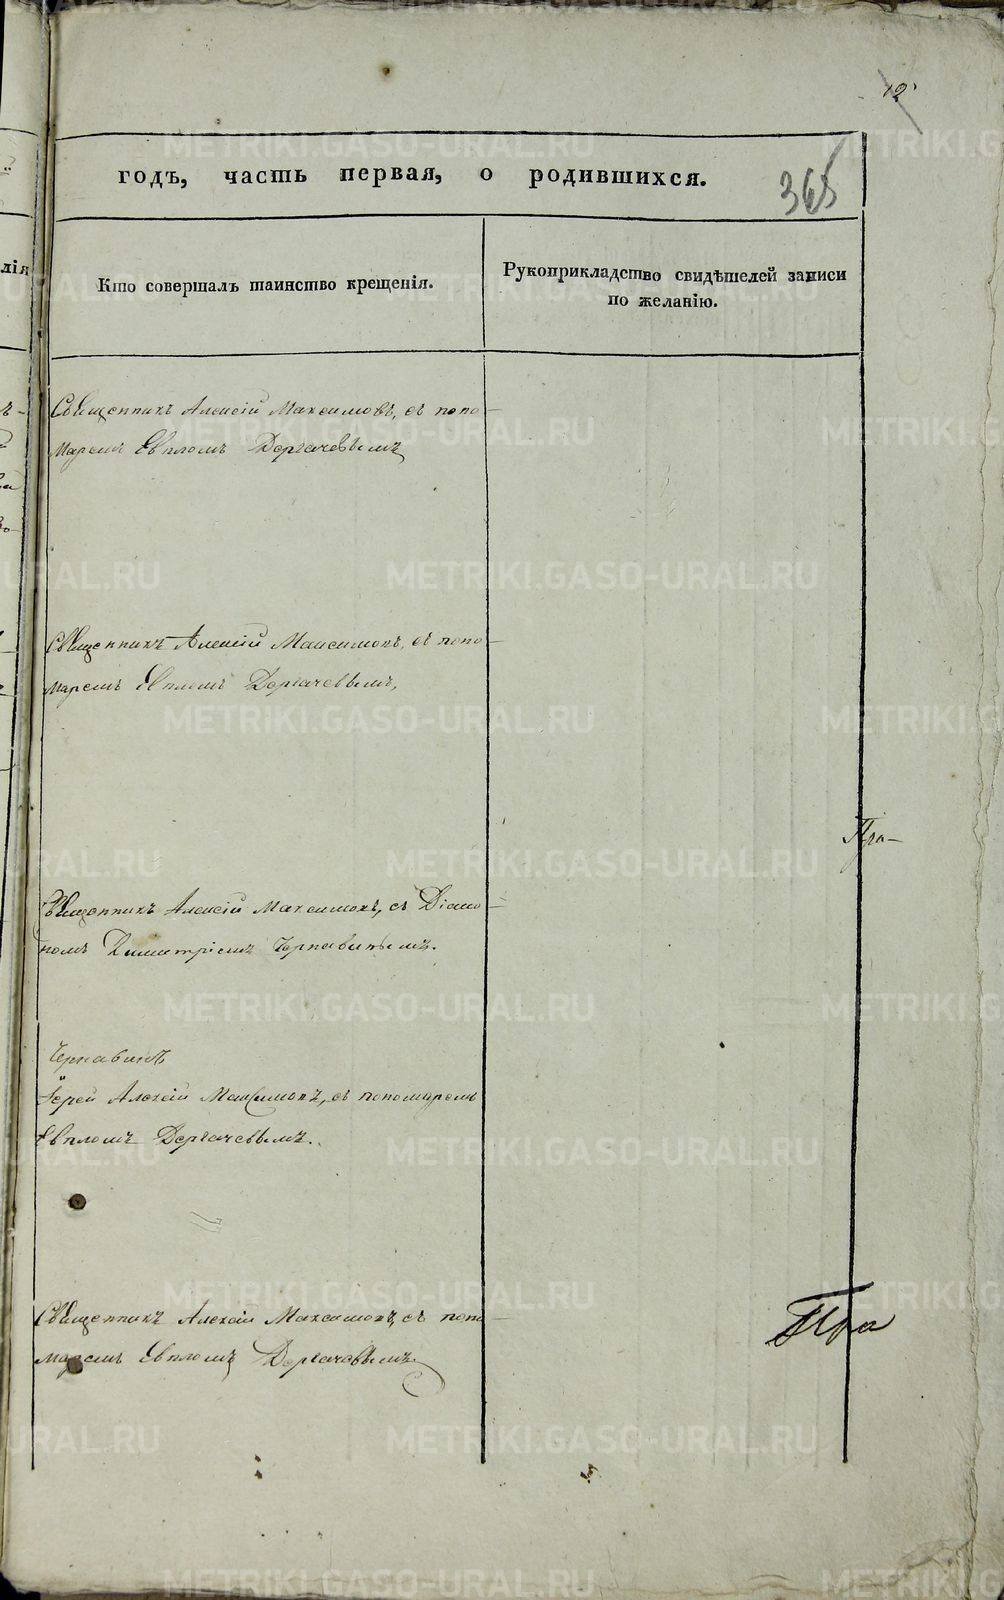 12
годъ, часть первая, о родившихся.
365
Кто совершалъ таинство крещенія.
Рукоприкладство свидѣтелей записи
по желанію.
лія
Священникъ Алексій Максимовъ, съ поно-
маремъ Евпломъ Дергачевымъ
Священникъ Алексій Максимовъ, съ поно-
маремъ Евпломъ Дергачевымъ,
Пра-
Священникъ Алексій Максимовъ, съ Діако-
номъ Димитріемъ Чернавинымъ.
Чернавинъ
Іерей Алексій Максимовъ, съ пономаремъ
Евпломъ Дергачевымъ.
Священникъ Алексій Максимовъ, съ поно-
маремъ Евпломъ Дергачевымъ.
Пра
METRIKI.GASO-URAL.RU